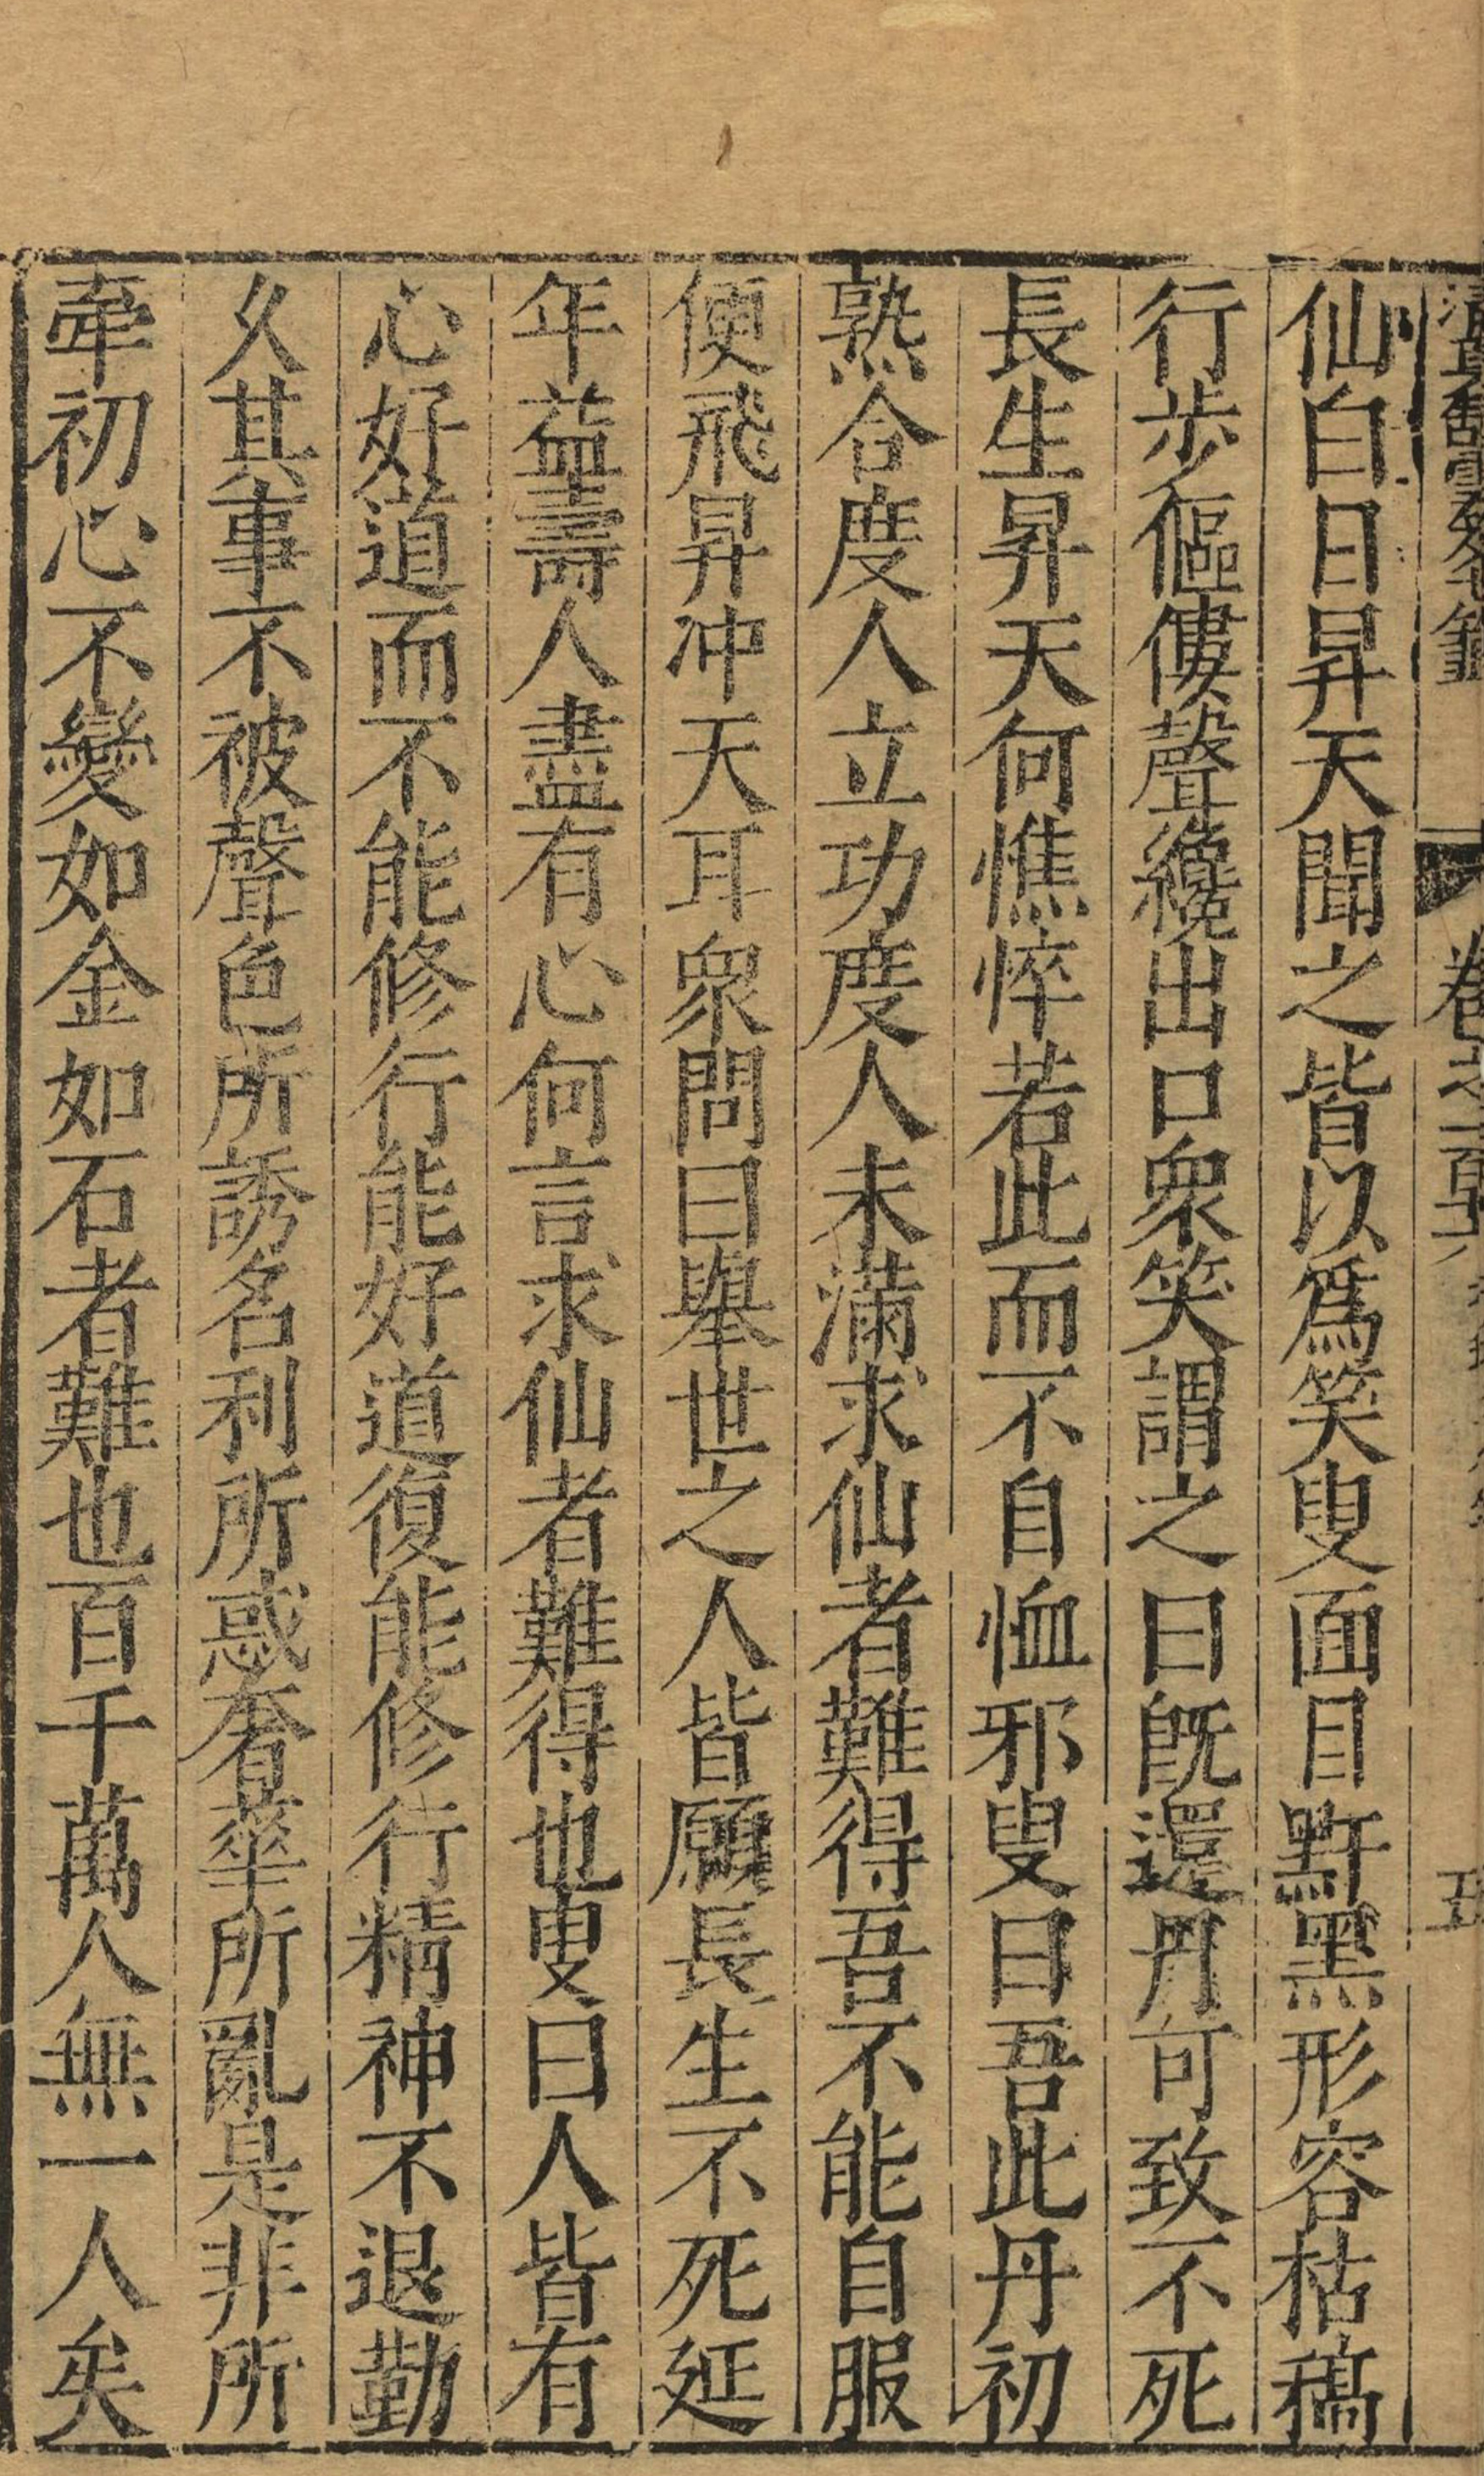 卷之
五
仙白日昇天聞之皆以爲笑叟面目黚黑形容枯稿
行步傴僂聲纔出口衆笑謂之曰旣還丹可致不死
長生昇天何憔悴若此而不自恤邪叟曰吾此丹初
熟合度人立功度人未滿求仙者難得吾不能自服
便飛昇冲天耳衆問曰舉世之人皆願長生不死延
年益壽人盡有心何言求仙者難得也叟曰人皆有
心好道而不能修行能好道復能修行精神不退勤
久其事不被聲色所誘名利所惑奢華所亂是非所
牽初心不變如金如石者難也百千萬人無一人矣